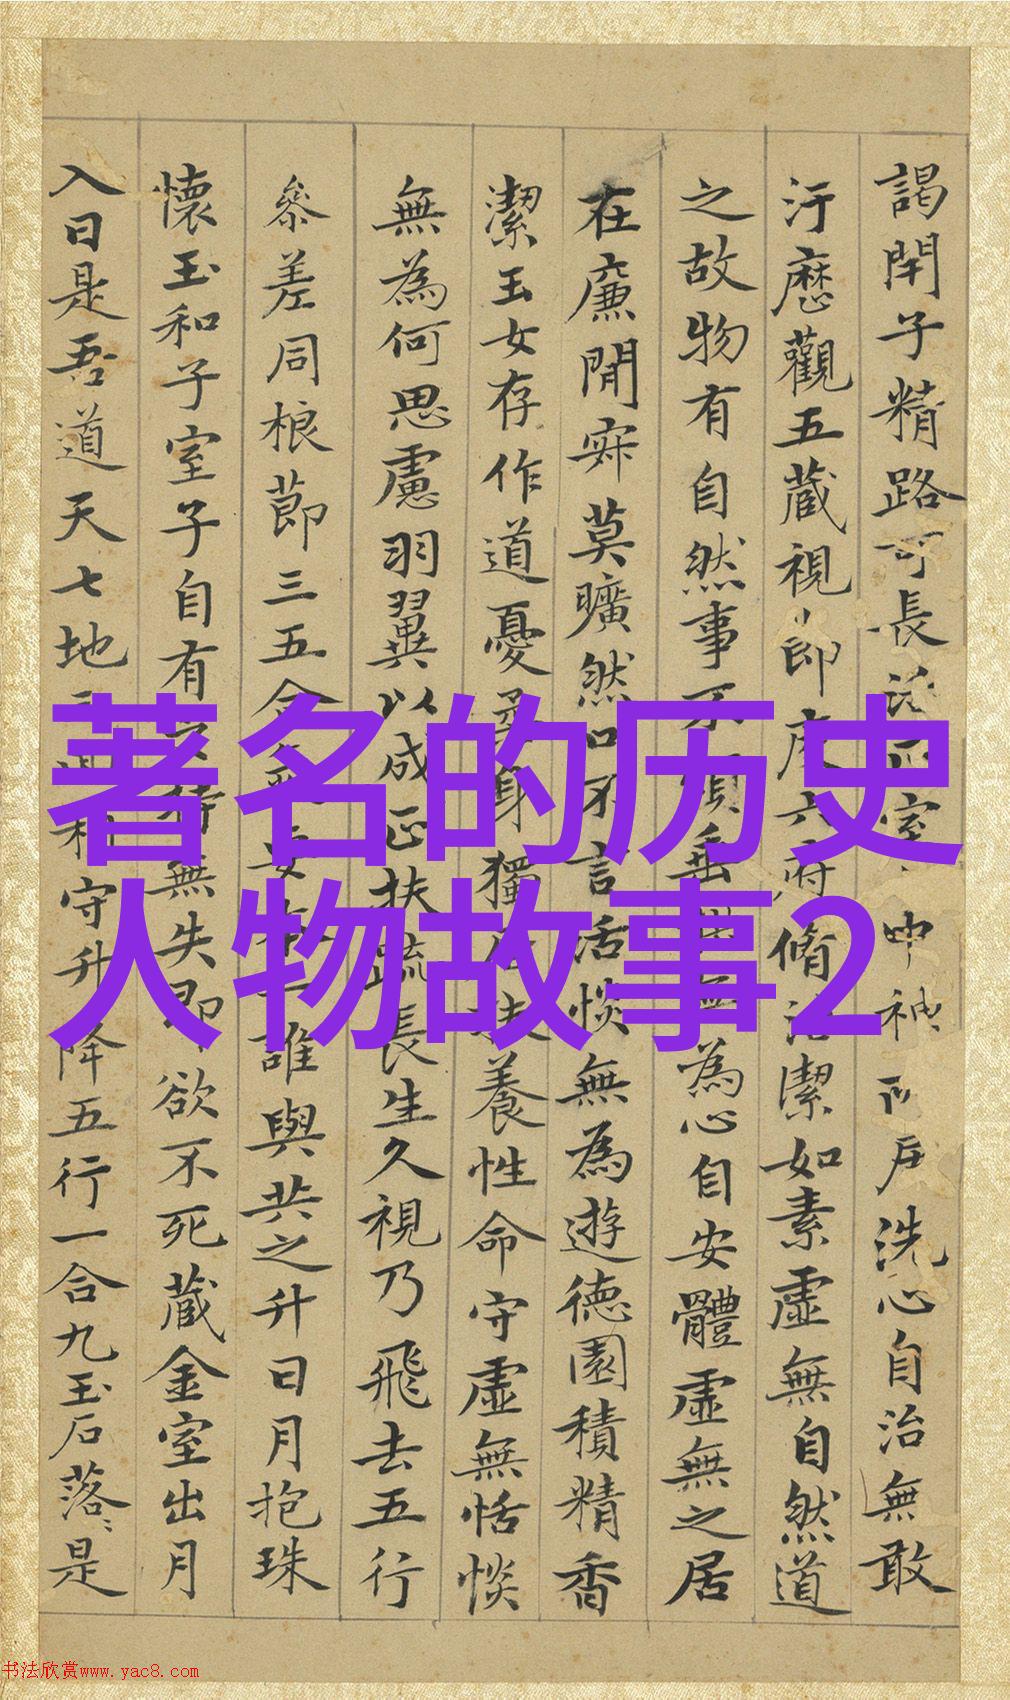 謁閇子精路可長活正室中神所居洗心自治無敢
汙歷觀五藏視節度六府脩治潔如素虛無自然道
之故物有自然事不煩垂拱無為心自安體虛無之居
在廉閒寂莫曠然口不言恬惔無為遊德園積精香
潔玉女存作道憂柔身獨居扶養性命守虛無恬惔
無為何思慮羽翼以成正扶疏長生久視乃飛去五行
參差同根莭三五合氣要本一誰與共之升日月抱珠
懷玉和子室子自有之持無失即欲不死藏金室出月
入日是吾道天七地三回相守升降五行一合九玉石落〻是
著名的历史
人物故事2
书法欣赏www.yac8.com